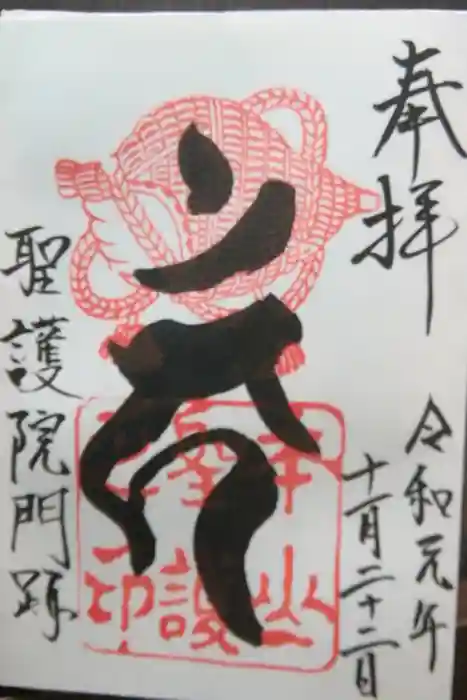 奉拝
令和元年
十一月二十二日
聖護院門跡